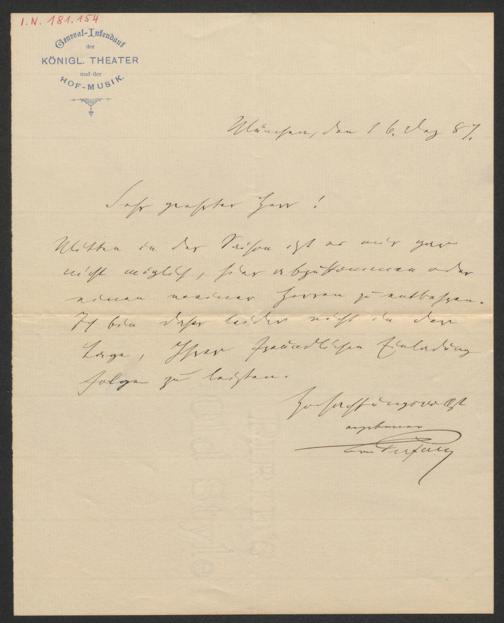 I.N. 181.154
General-Intendant
der
KÖNIGL. THEATER
und der
HOF-MUSIK.
München, den 16. Dez 87.
Sehr geehrter Herr!
Mitten in der Saison ist es mir gar
nicht möglich, hier abzukommen oder
einen meiner Herren zu entbehren.
Ich bin daher leider nicht in der
Lage, Ihrer freundlichen Einladung
Folge zu leisten.
Hochachtungsvollst
ergebener